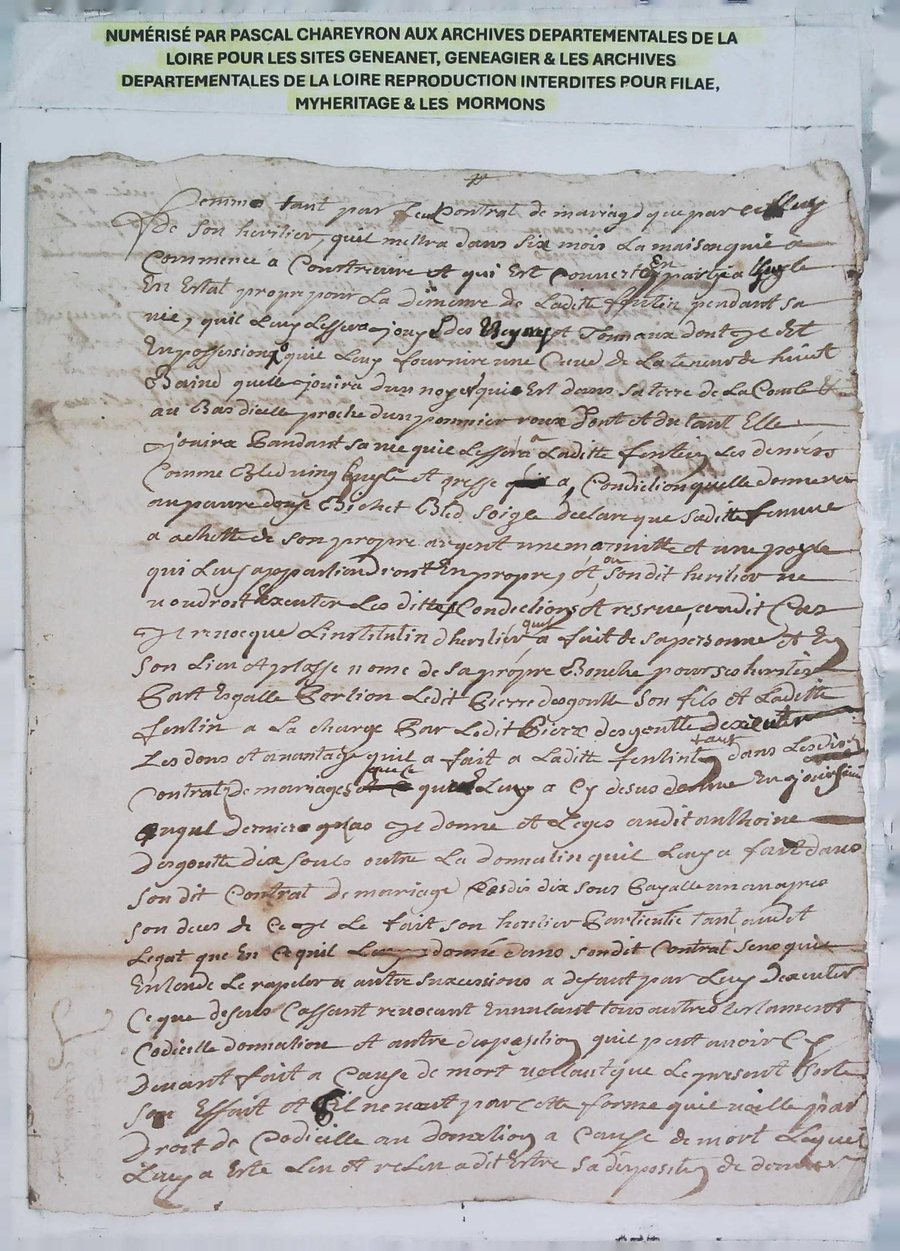 NUMÉRISÉ PAR PASCAL CHAREYRON AUX ARCHIVES DEPARTEMENTALES DE LA
LOIRE POUR LES SITES GENEANET, GENEAGIER & LES ARCHIVES
DEPARTEMENTALES DE LA LOIRE REPRODUCTION INTERDITES POUR FILAE,
MYHERITAGE & LES MORMONS
femme tant par le Contrat de mariage que par
de son heritier, quil mettra dans six mois La maison quil a
Commencé a Construire et qui Est Couverte En partie a
En Estat propre pour La demeure de Ladite fentin pendant sa
vie, quil Luy Lessera jouyr des et Tonnaux dont Il Est
En possession quil Luy fournira une Cuve de La teneur de huict
quelle jouira dun noyer qui Est dans sa terre de La Combe &
au Bas dicelle proche dun pommier roux dont Elle
jouira Pandant sa vie quil Lessera a Ladite fentin Les denrés
Comme Bled ving huyle et gresse a Condiction quelle donnera
au pauvre Bichet Bled soigle declare que sadite femme
a achetté de son propre argent une marmitte et une poyle
qui Luy appartiendront En propre, et ou sondit heritier ne
voudroit Executer Les dittes Condictions et reserve, audit Cas
Il revocque Linstitution dheritier quil a fait de sa personne et En
son Lieu et plasse nome de sa propre Bouche pour ses heritier
Part Egalle Portion Ledit Pierre desgoutte son fils et Ladite
fentin a La charge Par Ledit Pierre desgoutte dexecuter
Les dons et avantage quil a fait a Ladite fentin tant dans Lesdis
Contrat de mariages que ce Luy a Cy desus donné En
dernier Il donne et Legue audit anthoine
Desgoutte dix souls outre La donnation quil Luy a fait dans
sondit Contrat de mariage Lesdis dix sous Payalle un an apres
son deces de Ce Le fait son heritier Particulie tant audit
Legat que En Ce quil Luy donné dans sondit Contrat sens quil
Entende Le rapeler a autre suxcessions a defaut par Luy Dexecuter
Ce que desus Cassant revocant Ennulant tous autres testament
Codicille donnation et autre disposition quil peut avoir Cy
Devant fait a Cause de mort vollant que Le present sorte
son Effait et sil ne vaut par cette forme quil vaille par
Droit de Codicille ou donnation a Cause de mort Lequel
Luy a Esté Leu et releu a dit Estre sa disposition de dernier